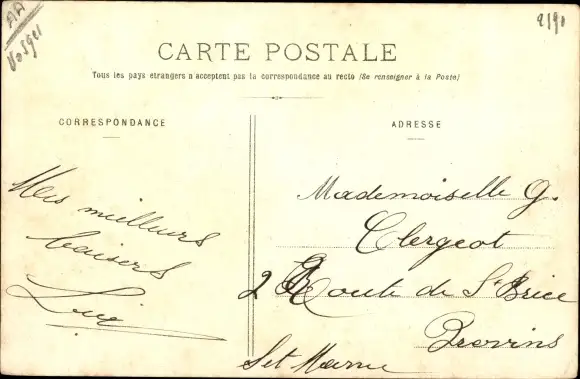 AA
Vosges
2190
CARTE POSTALE
Tous les pays etrangers n'acceptent pas la correspondance au recto (Se renseigner à la Poste)
CORRESPONDANCE
Mes meilleurs
baisers
ADRESSE
Mademoiselle G.
Clergeot
2 Route de St Brice
Provins
Set Marne